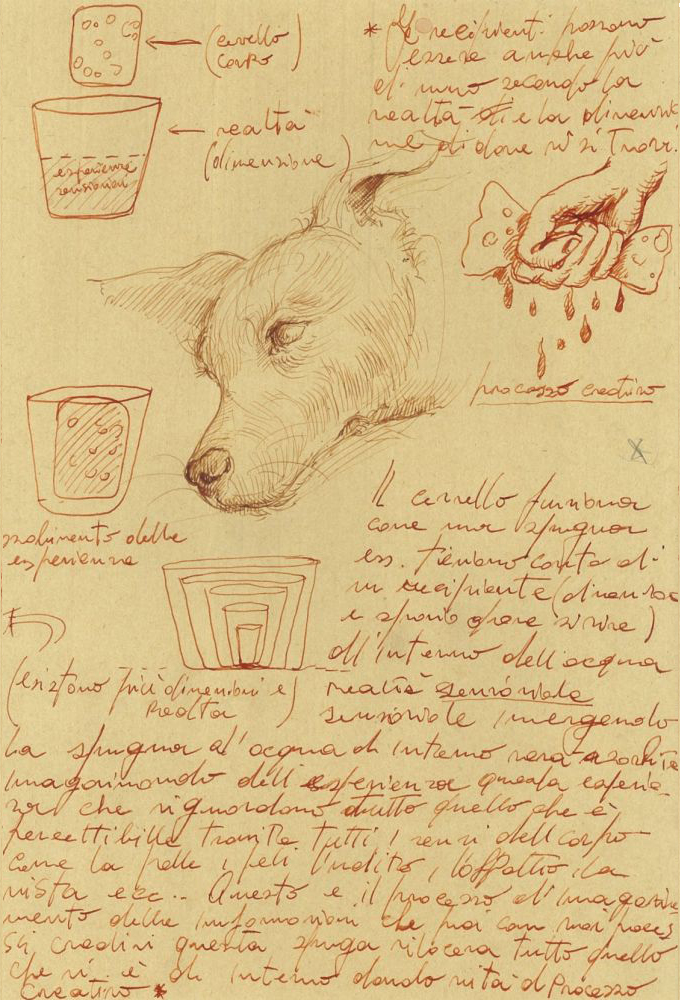 (cervello
corpo)
* I recipienti possono
essere anche più
di uno secondo la
realtà e la dimensio
ne di dove si si trova.
realtà
(dimensione)
esperienze
sensoriali
processo creativo
delle
esperienze
Il cervello funziona
come una spugna
es. teniamo conto di
un recipiente (dimensione
e spazio dove vivere)
all'interno dell'acqua
realtà sensoriale
sensoriale immergendo
*
(esistono più dimensioni e
realta)
la spugna all'acqua di interno verà assorbita
imagazinando dell'esperienza questa esperie-
nza che riguardano tutto quello che è
percettibille tramite tutti i sensi dell corpo
come la pelle, i peli l'udito, l'olfatto, la
vista ecc.. Questo e il processo di imagazine
mento delle informazioni che poi con vari proces
si creativi questa spuga rilocera tutto quello
che vi è di interno dando vita al Processo
Creativo *